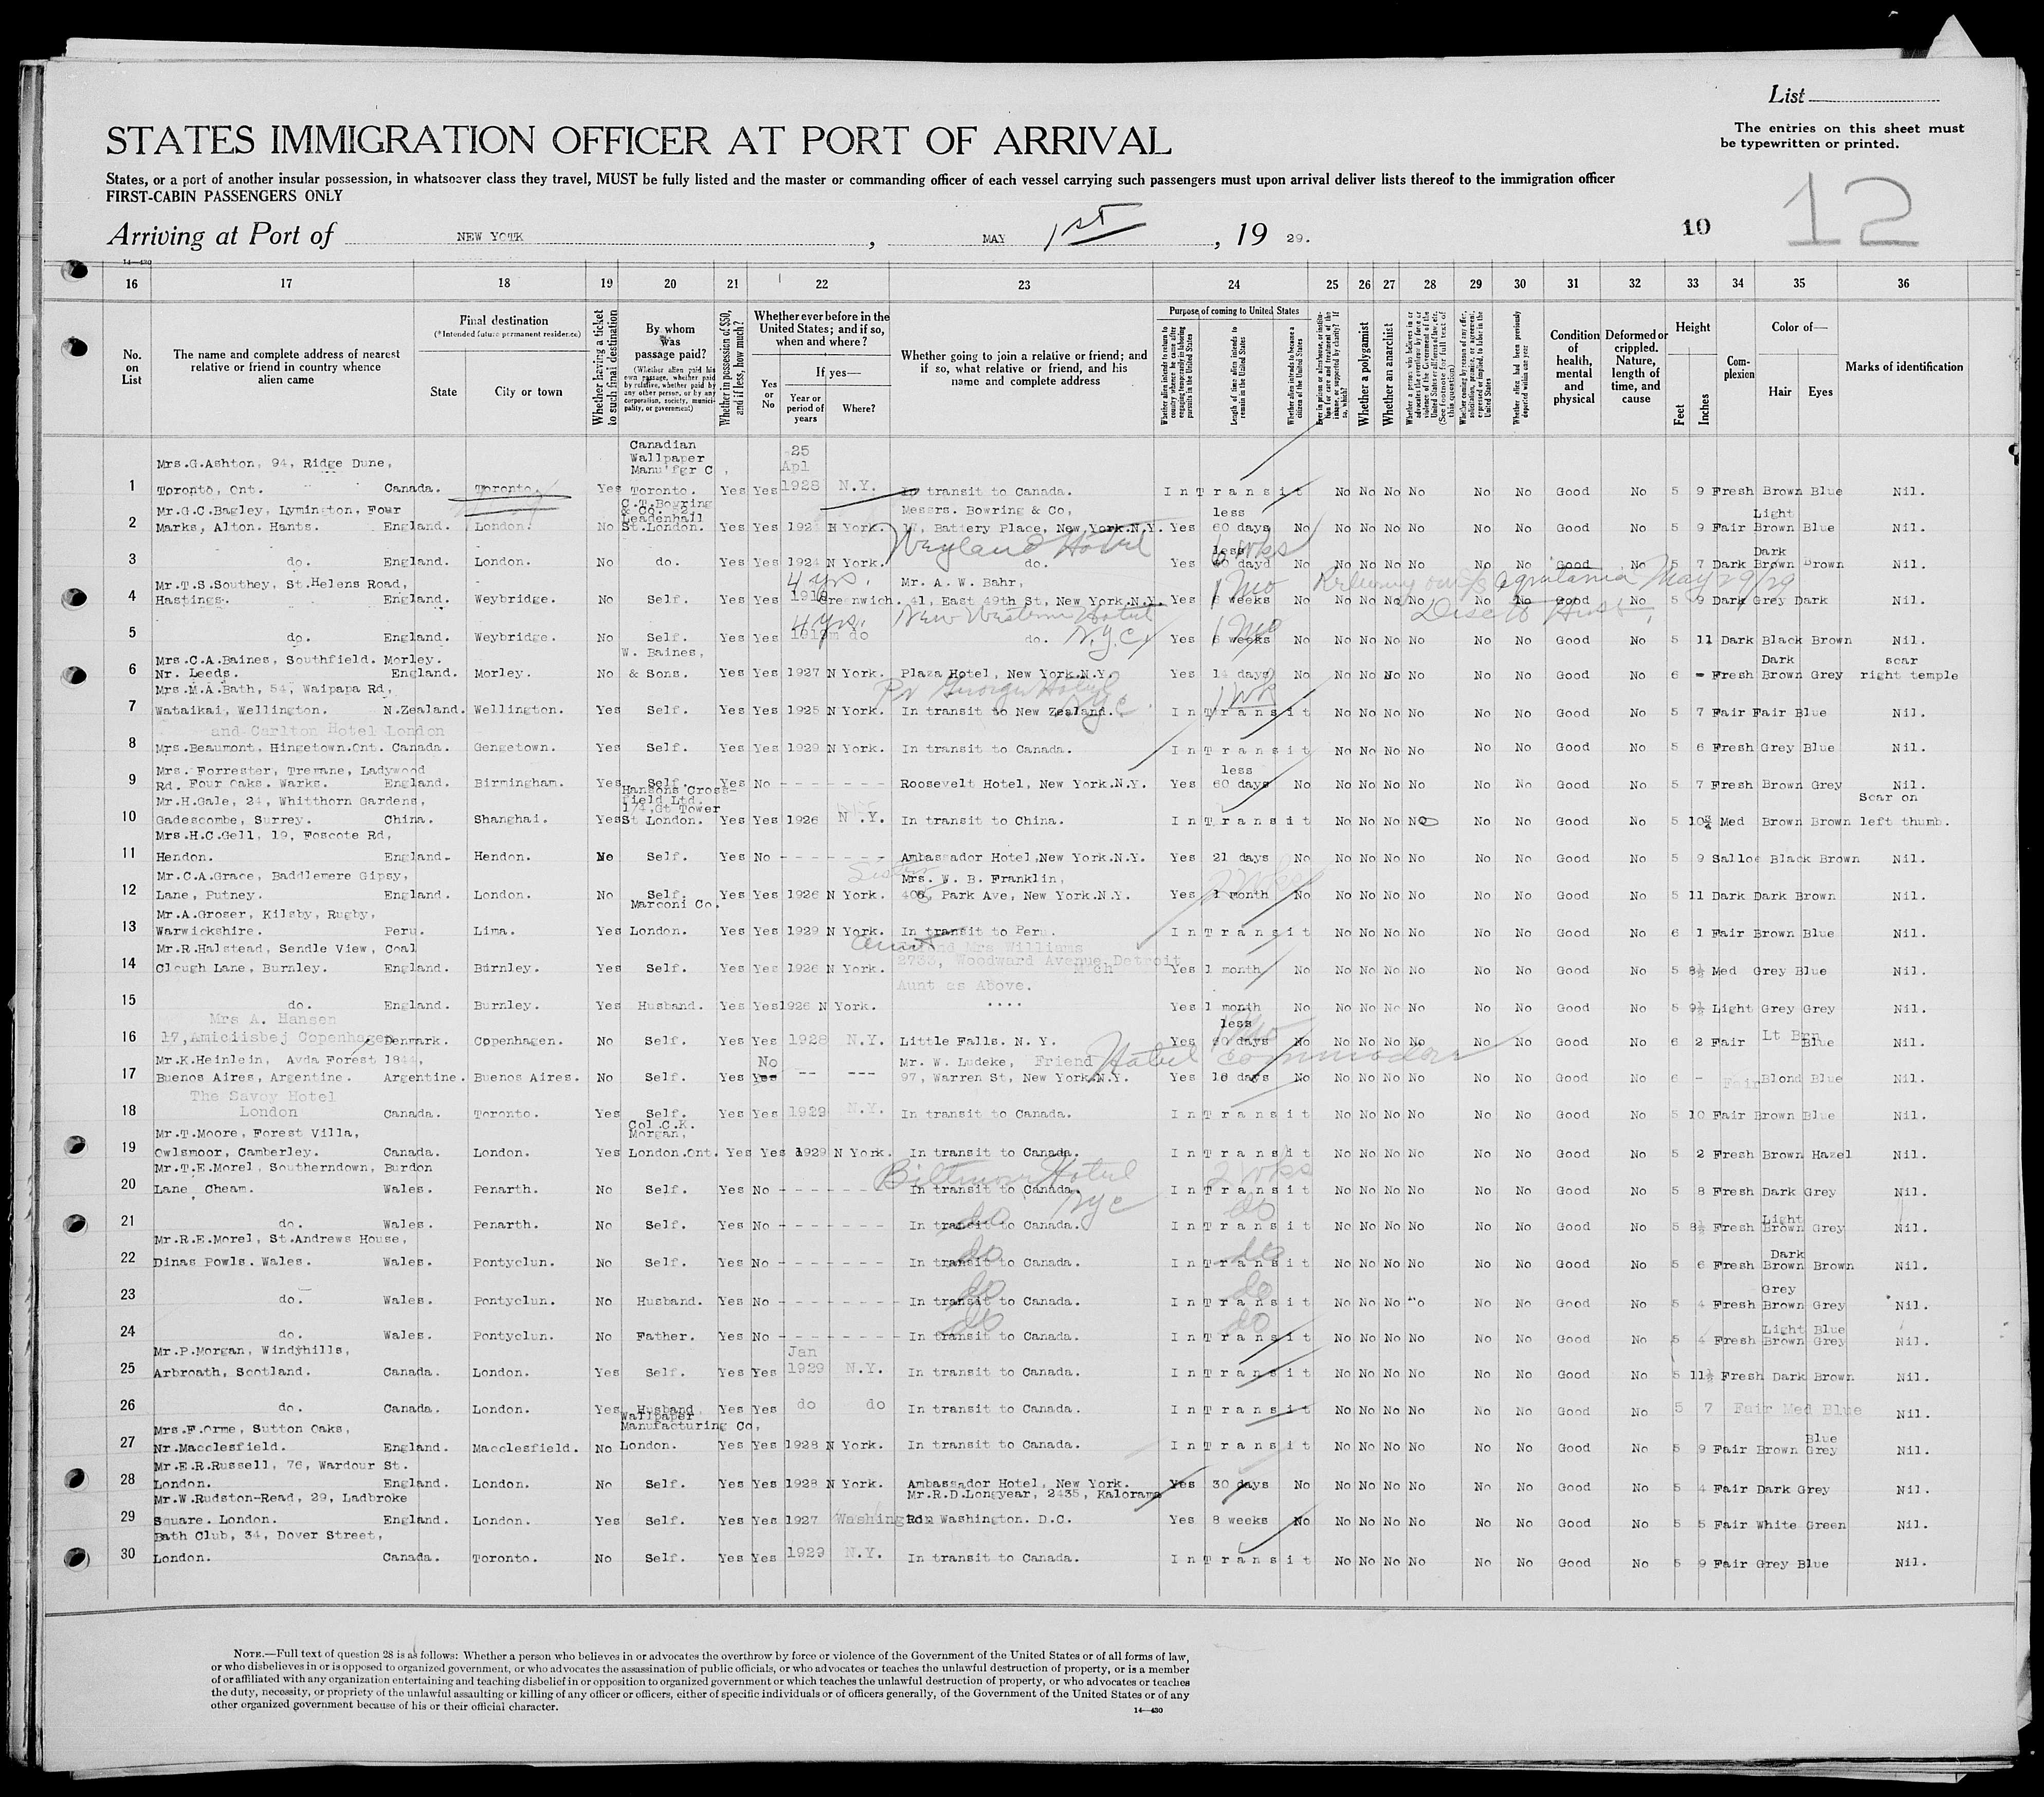 List
STATES IMMIGRATION OFFICER AT PORT OF ARRIVAL
The entries on this sheet must
be typewritten or printed.
States, or a port of another insular possession, in whatsoever class they travel, MUST be fully listed and the master or commanding officer of each vessel carrying such passengers must upon arrival deliver lists thereof to the immigration officer
FIRST-CABIN PASSENGERS ONLY
12
Arriving at Port of NEW YOTK , MAY 1st , 19 29.
10
14—430
16 17 18 19 20 21 22 23 24 25 26 27 28 29 30 31 32 33 34 35 36
No. on List
The name and complete address of nearest relative or friend in country whence alien came
Final destination
(*Intended future permanent residence)
State
City or town
Whether having a ticket to such final destination
By whom was passage paid?
(Whether alien paid his own passage, whether paid by relative, whether paid by any other person, or by any corporation, society, municipality, or government)
Whether in possession of $50, and if less, how much?
Whether ever before in the United States; and if so, when and where?
Yes or No
If yes—
Year or period of years
Where?
Whether going to join a relative or friend; and if so, what relative or friend, and his name and complete address
Purpose of coming to United States
Whether alien intends to return to country whence he came after engaging temporarily in laboring pursuits in the United States
Length of time alien intends to remain in the United States
Whether alien intends to become a citizen of the United States
Ever in prison or almshouse, or institution for care and treatment of the insane, or supported by charity? If so, which?
Whether a polygamist
Whether an anarchist
Whether a person who believes in or advocates the overthrow by force or violence of the Government of the United States or all forms of law, etc. (See footnote for full text of this question)
Whether coming by reason of any offer, solicitation, promise, or agreement, expressed or implied, to labor in the United States
Whether alien had been previously deported within one year
Condition of health, mental and physical
Deformed or crippled. Nature, length of time, and cause
Height
Feet
Inches
Complexion
Color of—
Hair
Eyes
Marks of identification
Canadian
Wallpaper
Manu'fgr C ,
25
Apl
Mrs.G.Ashton, 94, Ridge Dune,
1 Toronto, Ont. Canada. Toronto. Yes Toronto. Yes Yes 1928 N.Y. In transit to Canada. In Transit No No No No No No Good No 5 9 Fresh Brown Blue Nil.
Mr.G.C.Bagley, Lymington, Four
C.T.Bowring
& Co. 2,
Leadenhall
Messrs. Bowring & Co, less Light
2 Marks, Alton. Hants. England. London. No St.London. Yes Yes 1924 N York. 17, Battery Place, New York.N.Y. Yes 60 days No No No No No No No Good No 5 9 Fair Brown Blue Nil.
Weyland Hotel
6 wks
less Dark
3 do. England. London. No do. Yes Yes 1924 N York. do. Yes 60 dayd No No No No No No No Good No 5 7 Dark Brown Brown Nil.
Mr.T.S.Southey, St.Helens Road,
4 yrs. Mr. A. W. Bahr, 1 Mo
Aquitania May 29/29
4 Hastings. England. Weybridge. No Self. Yes Yes 1918 Greenwich. 41, East 49th St, New York.N.Y. Yes 6 weeks No No No No No No No Good No 5 9 Dark Grey Dark Nil.
4 yrs. New Western Hotel
N.Y.C. 1 Mo
5 do. England. Weybridge. No Self. Yes Yes 1919 do do. Yes 6 weeks No No No No No No No Good No 5 11 Dark Black Brown Nil.
Mrs.C.A.Baines, Southfield. Morley. W. Baines, Dark scar
6 Nr. Leeds. England. Morley. No & Sons. Yes Yes 1927 N York. Plaza Hotel, New York.N.Y. Yes 14 days No No No No No No No Good No 6 - Fresh Brown Grey right temple
Mrs.M.A.Bath, 54, Waipapa Rd,
NYC. 1 wk
7 Wataikai, Wellington. N.Zealand. Wellington. Yes Self. Yes Yes 1925 N York. In transit to New Zealand. In Transit No No No No No No Good No 5 7 Fair Fair Blue Nil.
and Carlton Hotel London
8 Mrs.Beaumont, Hingetown.Ont. Canada. Gengetown. Yes Self. Yes Yes 1929 N York. In transit to Canada. In Transit No No No No No No Good No 5 6 Fresh Grey Blue Nil.
Mrs. Forrester, Tremane, Ladywood less
9 Rd. Four Oaks. Warks. England. Birmingham. Yes Self. Yes No - - - - - - Roosevelt Hotel, New York.N.Y. Yes 60 days No No No No No No No Good No 5 7 Fresh Brown Grey Nil.
Mr.H.Gale, 24, Whitthorn Gardens,
Hansons Cross-
field Ltd.
1/4,Gt Tower
Scar on
10 Gadescombe, Surrey. China. Shanghai. Yes St London. Yes Yes 1926 N .Y. In transit to China. In Transit No No No No No No Good No 5 10¾ Med Brown Brown left thumb.
Mrs.H.C.Gell, 19, Foscote Rd,
11 Hendon. England. Hendon. No Self. Yes No - - - - - - Ambassador Hotel,New York.N.Y. Yes 21 days No No No No No No No Good No 5 9 Salloe Black Brown Nil.
Mr.C.A.Grace, Baddlemere Gipsy, Sister Mrs. W. B. Franklin,
12 Lane, Putney. England. London. No Self. Yes Yes 1926 N York. 405, Park Ave, New York.N.Y. Yes 1 month No No No No No No No Good No 5 11 Dark Dark Brown Nil.
Mr.A.Groser, Kilsby, Rugby, Marconi Co.
13 Warwickshire. Peru. Lima. Yes London. Yes Yes 1929 N York. In transit to Peru. In Transit No No No No No No Good No 6 1 Fair Brown Blue Nil.
Mr.R.Halstead, Sendle View, Coal Aunt and Mrs Williams
2733, Woodward Avenue Detroit
Mich
14 Clough Lane, Burnley. England. Burnley. Yes Self. Yes Yes 1926 N York. Yes 1 month No No No No No No No Good No 5 8½ Med Grey Blue Nil.
Aunt as Above.
15 do. England. Burnley. Yes Husband. Yes Yes 1926 N York. .... Yes 1 month No No No No No No No Good No 5 9½ Light Grey Grey Nil.
Mrs A. Hansen less
16 17,Amiciisbej Copenhagen Denmark. Copenhagen. No Self. Yes Yes 1928 N.Y. Little Falls. N. Y. Yes 60 days No No No No No No No Good No 6 2 Fair Lt Brn Blue Nil.
Mr.K.Heinlein, Avda Forest 1844, No Mr. W. Ludeke, Friend Hotel Commodore
17 Buenos Aires, Argentine. Argentine. Buenos Aires. No Self. Yes Yes -- --- 97, Warren St, New York.N.Y. Yes 10 days No No No No No No No Good No 6 - Fair Blond Blue Nil.
The Savoy Hotel
18 London Canada. Toronto. Yes Self. Yes Yes 1929 N.Y. In transit to Canada. In Transit No No No No No No Good No 5 10 Fair Brown Blue Nil.
Mr.T.Moore, Forest Villa, Col.C.K.
Morgan,
19 Owlsmoor, Camberley. Canada. London. Yes London.Ont. Yes Yes 1929 N York. In transit to Canada. In Transit No No No No No No Good No 5 2 Fresh Brown Hazel Nil.
Mr.T.E.Morel, Southerndown, Burdon Biltmore Hotel NYC 2 wks
20 Lane, Cheam. Wales. Penarth. No Self. Yes No - - - - - - In transit to Canada. In Transit No No No No No No Good No 5 8 Fresh Dark Grey Nil.
do do Light
21 do. Wales. Penarth. No Self. Yes No - - - - - - In transit to Canada. In Transit No No No No No No Good No 5 8½ Fresh Brown Grey Nil.
Mr.R.E.Morel, St.Andrews House, do do Dark
22 Dinas Powls. Wales. Wales. Pontyclun. No Self. Yes No - - - - - - In transit to Canada. In Transit No No No No No No Good No 5 6 Fresh Brown Brown Nil.
do do Grey
23 do. Wales. Pontyclun. No Husband. Yes No - - - - - - In transit to Canada. In Transit No No No No No No Good No 5 4 Fresh Brown Grey Nil.
do do Light Blue
24 do. Wales. Pontyclun. No Father. Yes No - - - - - - In transit to Canada. In Transit No No No No No No Good No 5 4 Fresh Brown Grey Nil.
Mr.P.Morgan, Windyhills, Jan
25 Arbroath, Scotland. Canada. London. Yes Self. Yes Yes 1929 N.Y. In transit to Canada. In Transit No No No No No No Good No 5 11½ Fresh Dark Brown Nil.
26 do. Canada. London. Yes Husband Yes Yes do do In transit to Canada. In Transit No No No No No No Good No 5 7 Fair Med Blue Nil.
Mrs.F.Orme, Sutton Oaks, Wallpaper
Manufacturing Co, Blue
27 Nr.Macclesfield. England. Macclesfield. No London. Yes Yes 1928 N York. In transit to Canada. In Transit No No No No No No Good No 5 9 Fair Brown Grey Nil.
Mr.E.R.Russell, 76, Wardour St.
28 London. England. London. No Self. Yes Yes 1928 N York. Ambassador Hotel, New York. Yes 30 days No No No No No No No Good No 5 4 Fair Dark Grey Nil.
Mr.W.Rudston-Read, 29, Ladbroke Mr.R.D.Longyear, 2435, Kalorama
29 Square. London. England. London. Yes Self. Yes Yes 1927 Washington Rd. Washington. D.C. Yes 8 weeks No No No No No No No Good No 5 5 Fair White Green Nil.
Bath Club, 34, Dover Street,
30 London. Canada. Toronto. No Self. Yes Yes 1929 N.Y. In transit to Canada. In Transit No No No No No No Good No 5 9 Fair Grey Blue Nil.
NOTE.—Full text of question 28 is as follows: Whether a person who believes in or advocates the overthrow by force or violence of the Government of the United States or of all forms of law,
or who disbelieves in or is opposed to organized government, or who advocates the assassination of public officials, or who advocates or teaches the unlawful destruction of property, or is a member
of or affiliated with any organization entertaining and teaching disbelief in or opposition to organized government or which teaches the unlawful destruction of property, or who advocates or teaches
the duty, necessity, or propriety of the unlawful assaulting or killing of any officer or officers, either of specific individuals or of officers generally, of the Government of the United States or of any
other organized government because of his or their official character.
14—430